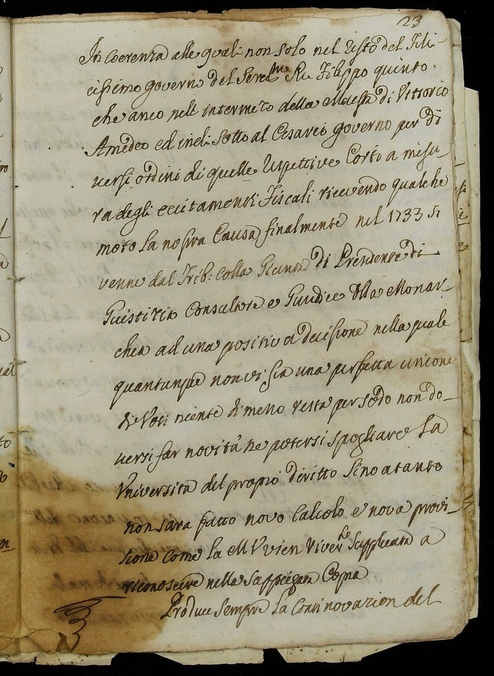 23
In coerenza alle quali non solo nel resto del Feli-
cissimo governo del Seren.mo Re Filippo quinto,
che anco nell intermezo della Maestà di Vittorio
Amedeo ed indi sotto al Cesareo governo per di
versi ordini di quelle rispettive Corti a misu-
ra degli eccitamenti Fiscali ricevendo qualche
moto la nostra Causa finalmente nel 1733 si
venne dal Trib. colla Giunta di Presidente di
Giustizia Consultore e Giudice della Monar-
chia ad una positiva decisione nella quale
quantunque non vi sia una perfetta unione
di Voti niente di meno resta per sodo non do-
versi far novità ne potersi spogliare la
Università del proprio diritto sino a tanto
non sarà fatto novo Calcolo, e nova provi-
sione come la M V vien river.te supplicata a
riconoscere nella
Copia
Produce sempre la Continovazion del